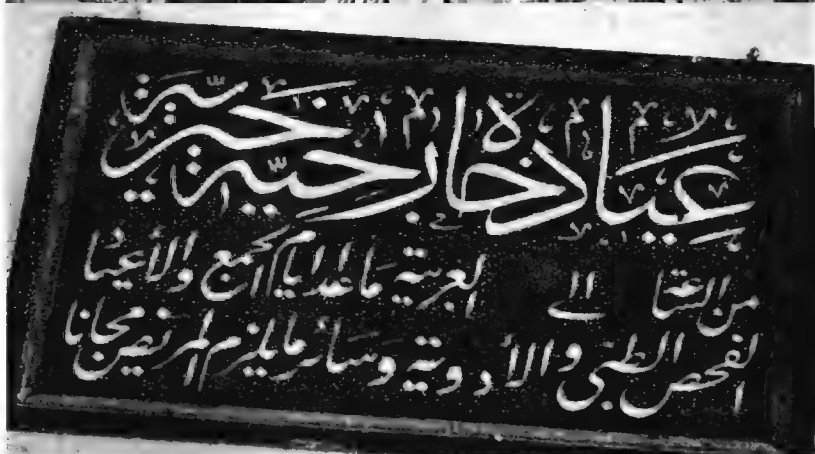 عيادة خارجية خيرية
من الساعة الى العربية ماعدا ايام الجمع والأعياد
الفحص الطبي والأدوية وسائر مايلزم المريض مجانا